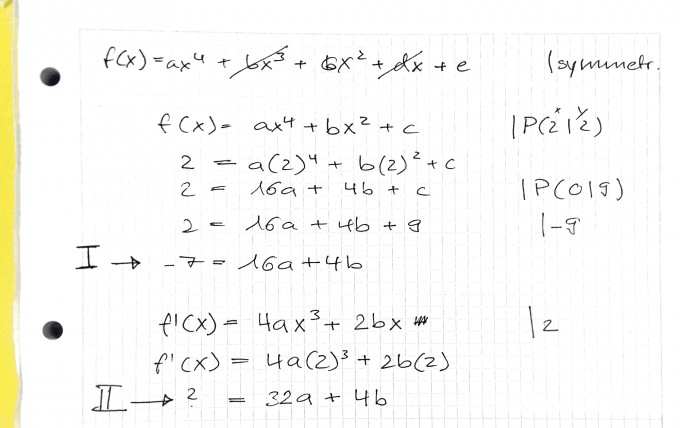 f(x) = ax⁴ + bx³ + 6x² + dx + e |symmetr.
f(x) = ax⁴ + bx² + c |P(2|2) x y
2 = a(2)⁴ + b(2)² + c
2 = 16a + 4b + c |P(0|9)
2 = 16a + 4b + 9 |-9
I → -7 = 16a + 4b
f'(x) = 4ax³ + 2bx |2
f'(x) = 4a(2)³ + 2b(2)
II → ? = 32a + 4b